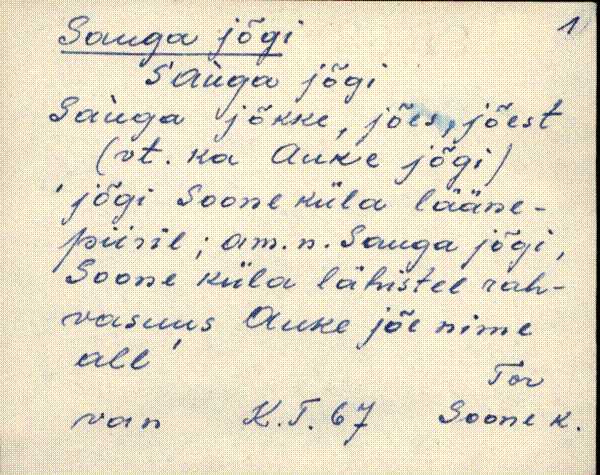 Sauga jõgi 1
Sàuga jõgi
Sàuga jõkke, jões, jõest
(vt. ka Auke jõgi)
'jõgi Soone küla lääne-
piiril; am. n. Sauga jõgi,
Soone küla lähistel rah-
vasuus Auke jõe nime
all'
Tor
van K.T. 67 Soone k.